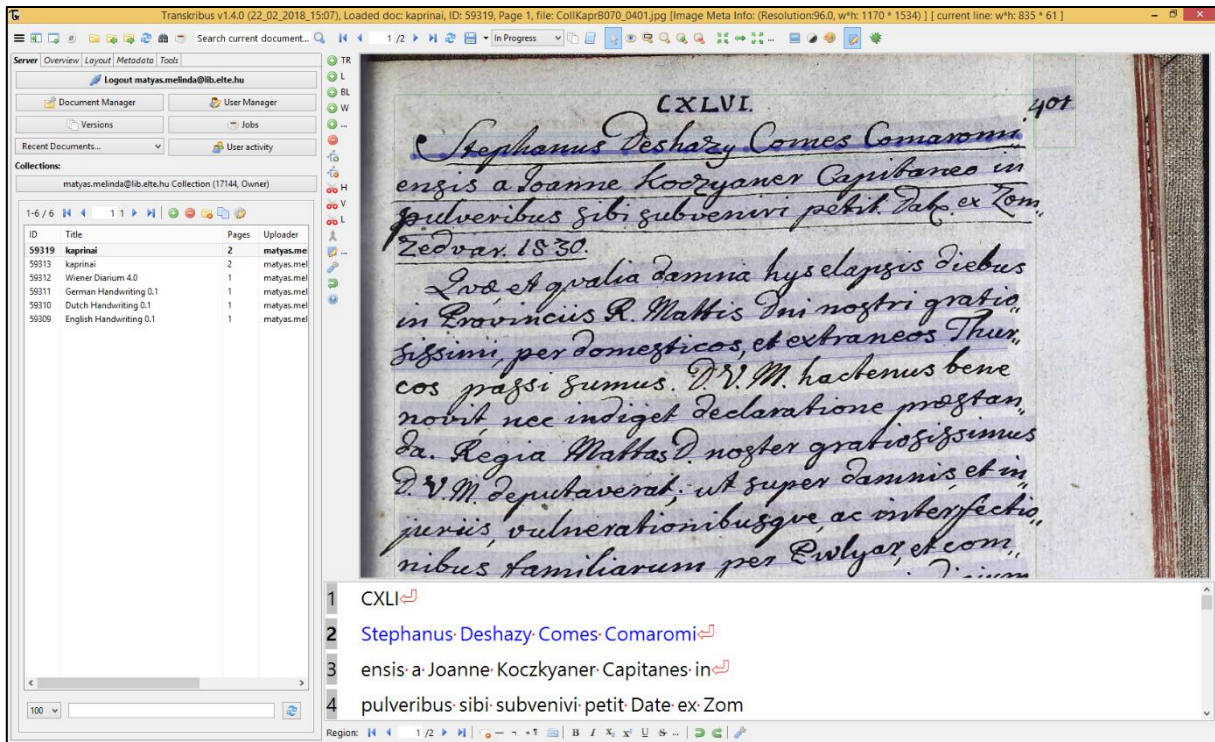 Transkribus v1.4.0 (22_02_2018_15:07), Loaded doc: kaprinai, ID: 59319, Page 1, file: CollKaprB070_0401.jpg [Image Meta Info: (Resolution:96.0, w*h: 1170 * 1534) ] [ current line: w*h: 835 * 61 ]
Search current document...
1 /2
In Progress
Server Overview Layout Metadata Tools
Logout matyas.melinda@lib.elte.hu
Document Manager User Manager
Versions Jobs
Recent Documents... User activity
Collections:
matyas.melinda@lib.elte.hu Collection (17144, Owner)
1-6 / 6 1 1
ID Title Pages Uploader
59319 kaprinai 2 matyas.me
59313 kaprinai 2 matyas.mel
59312 Wiener Diarium 4.0 1 matyas.mel
59311 German Handwriting 0.1 1 matyas.mel
59310 Dutch Handwriting 0.1 1 matyas.mel
59309 English Handwriting 0.1 1 matyas.mel
100
TR
L
BL
W
...
H
V
L
...
CXLVI. 401
Stephanus Deshazy Comes Comaromi„
ensis a Joanne Koczyaner Capitaneo in
pulveribus sibi subveniri petit. Dat. ex Zom„
Zedvar. 1530.
Quæ et qvalia damna hys elapsis diebus
in Provinciis R. Mattis Dni nostri gratio„
sissimi, per domesticos, et extraneos Thur„
cos passi sumus. D.V.M. hactenus bene
novit, nec indiget declaratione præstan„
da. Regia Mattas D. noster gratiosissimus
D.V.M. deputaverat; ut super damnis, et in„
juriis, vulnerationibusqve, ac interfectio„
nibus familiarum per et com„
1 CXLI
2 Stephanus Deshazy Comes Comaromi
3 ensis a Joanne Koczkyaner Capitanes in
4 pulveribus sibi subvenivi petit Date ex Zom
Region: 1 /2 B I X₂ X² U S ...